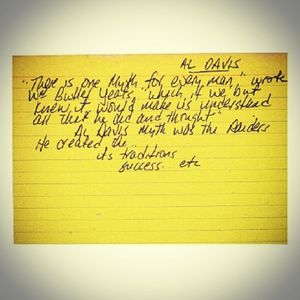 AL DAVIS
"There is one Myth for every man," wrote
WB Butler Yeats, "which if we but
knew it, would make us understand
all that he did and thought"
Al Davis Myth was the Raiders
He created the
its traditions
success.. etc